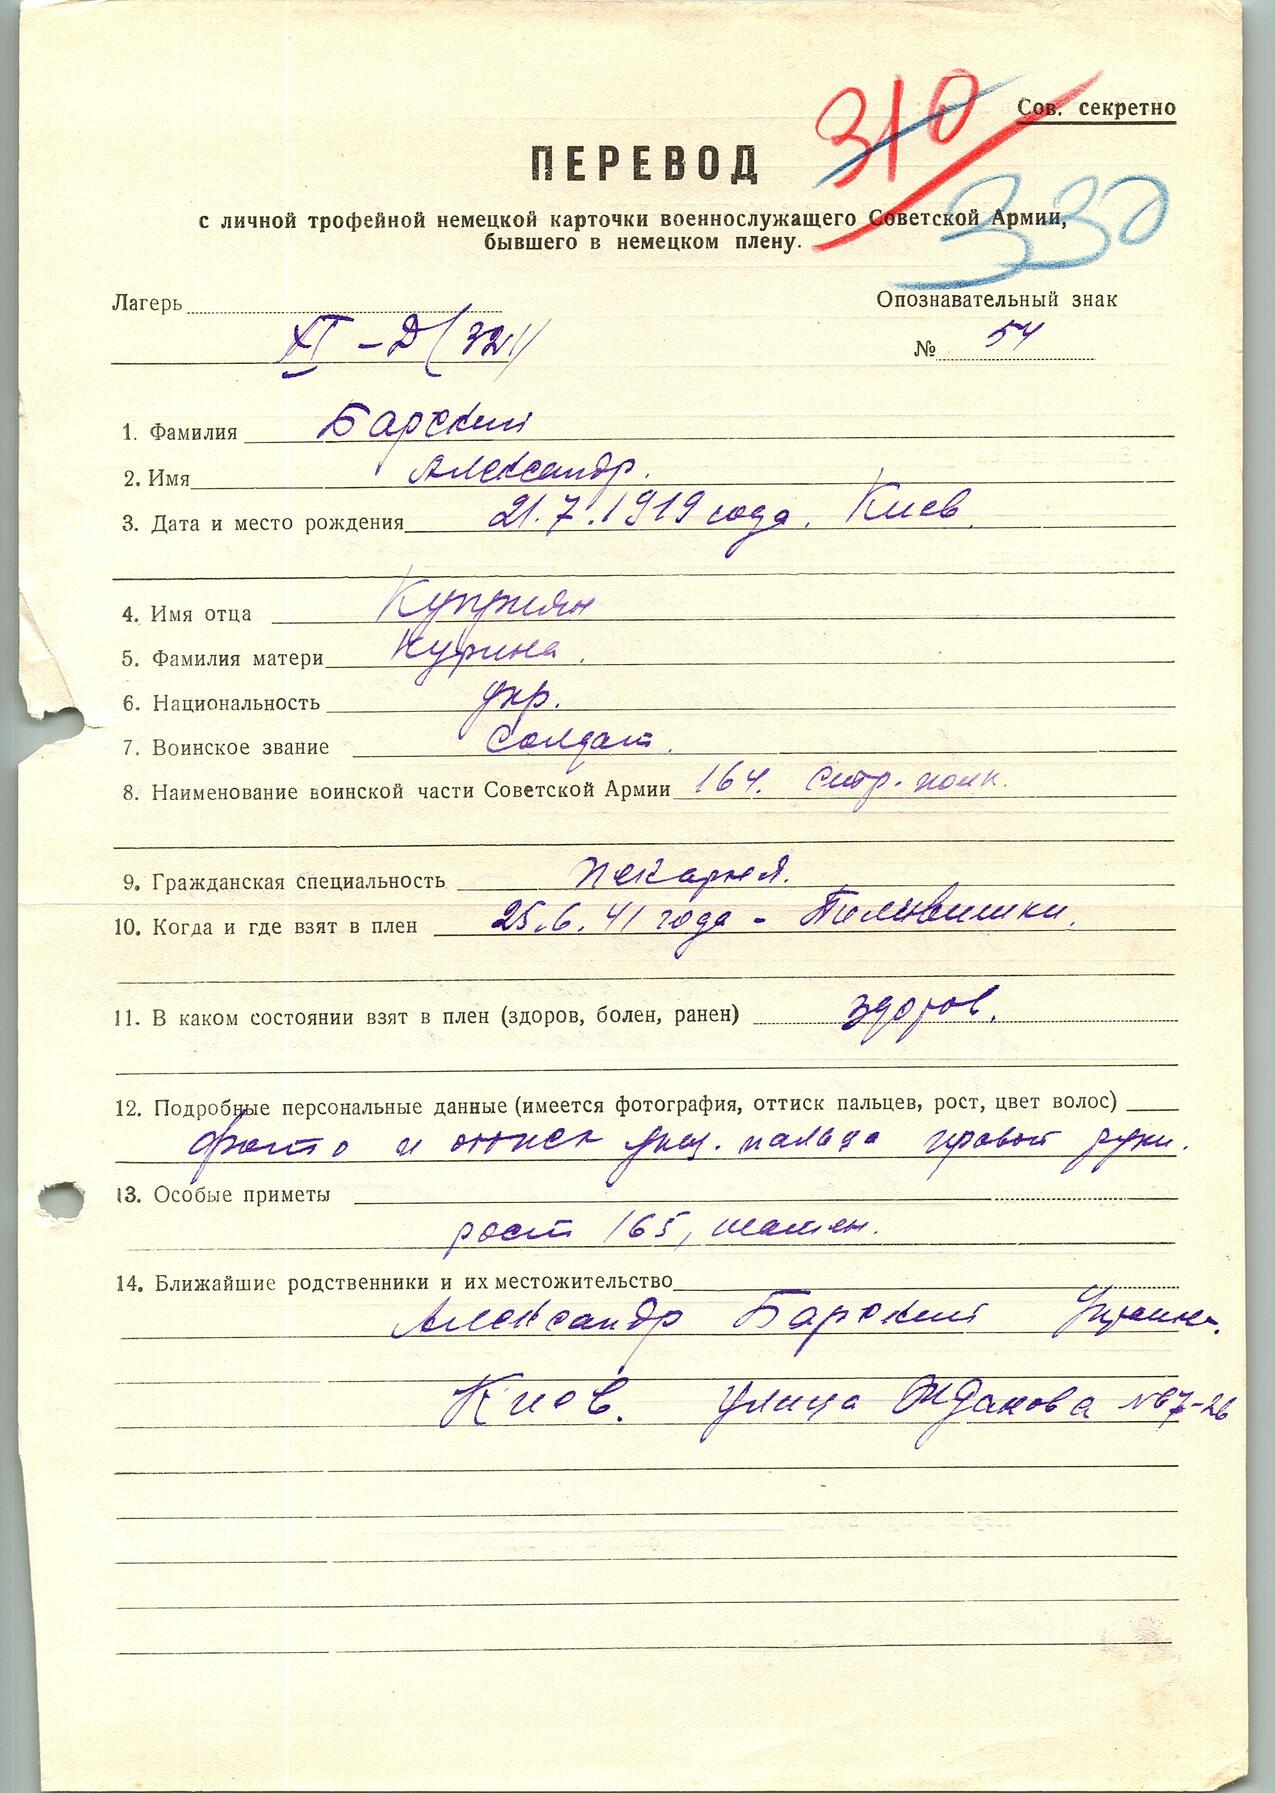 310
Сов. секретно
ПЕРЕВОД
330
с личной трофейной немецкой карточки военнослужащего Советской Армии,
бывшего в немецком плену.
Лагерь
Опознавательный знак
XI – Д (321)
№ 54
1. Фамилия Барский
2. Имя Александр.
3. Дата и место рождения 21.7.1919 года. Киев.
4. Имя отца Куприян
5. Фамилия матери Курина.
6. Национальность укр.
7. Воинское звание Солдат.
8. Наименование воинской части Советской Армии 164. стр. полк.
9. Гражданская специальность Пекарня.
10. Когда и где взят в плен 25.6.41 года – Пильвишки.
11. В каком состоянии взят в плен (здоров, болен, ранен) здоров.
12. Подробные персональные данные (имеется фотография, оттиск пальцев, рост, цвет волос)
Фото и оттиск указ. пальца правой руки.
13. Особые приметы
рост 165, шатен.
14. Ближайшие родственники и их местожительство
Александр Барский Украина.
Киев. улица Жданова №